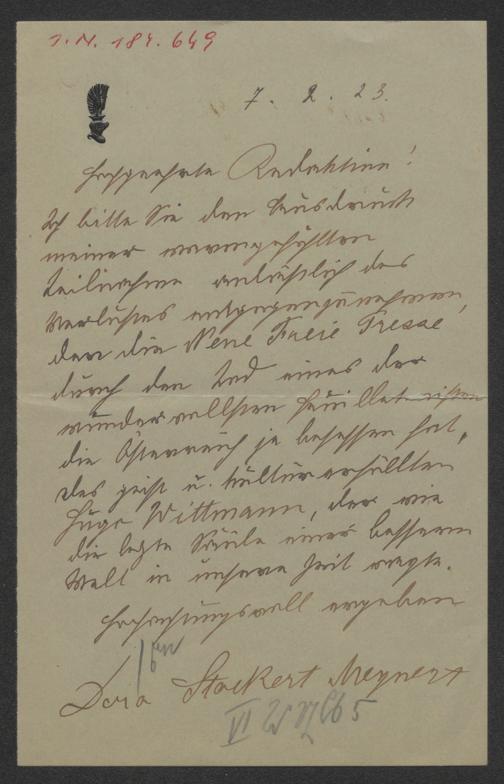 I.N. 184.649
7. 2. 23.
Hochgeehrte Redaktion!
Ich bitte Sie den Ausdruck
meiner warmgefühlten
Teilnahme anläßlich des
Verlustes entgegenzunehmen,
den die Neue Freie Presse
durch den Tod eines der
wundervollsten Feuilletonisten
die Österreich je besessen hat,
des geist u. kulturerfüllten
Hugo Wittmann, der wie
die letzte Säule einer bessern
Welt in unsere Zeit ragte.
Hochachtungsvoll ergeben
Dora Stockert Meynert
VI